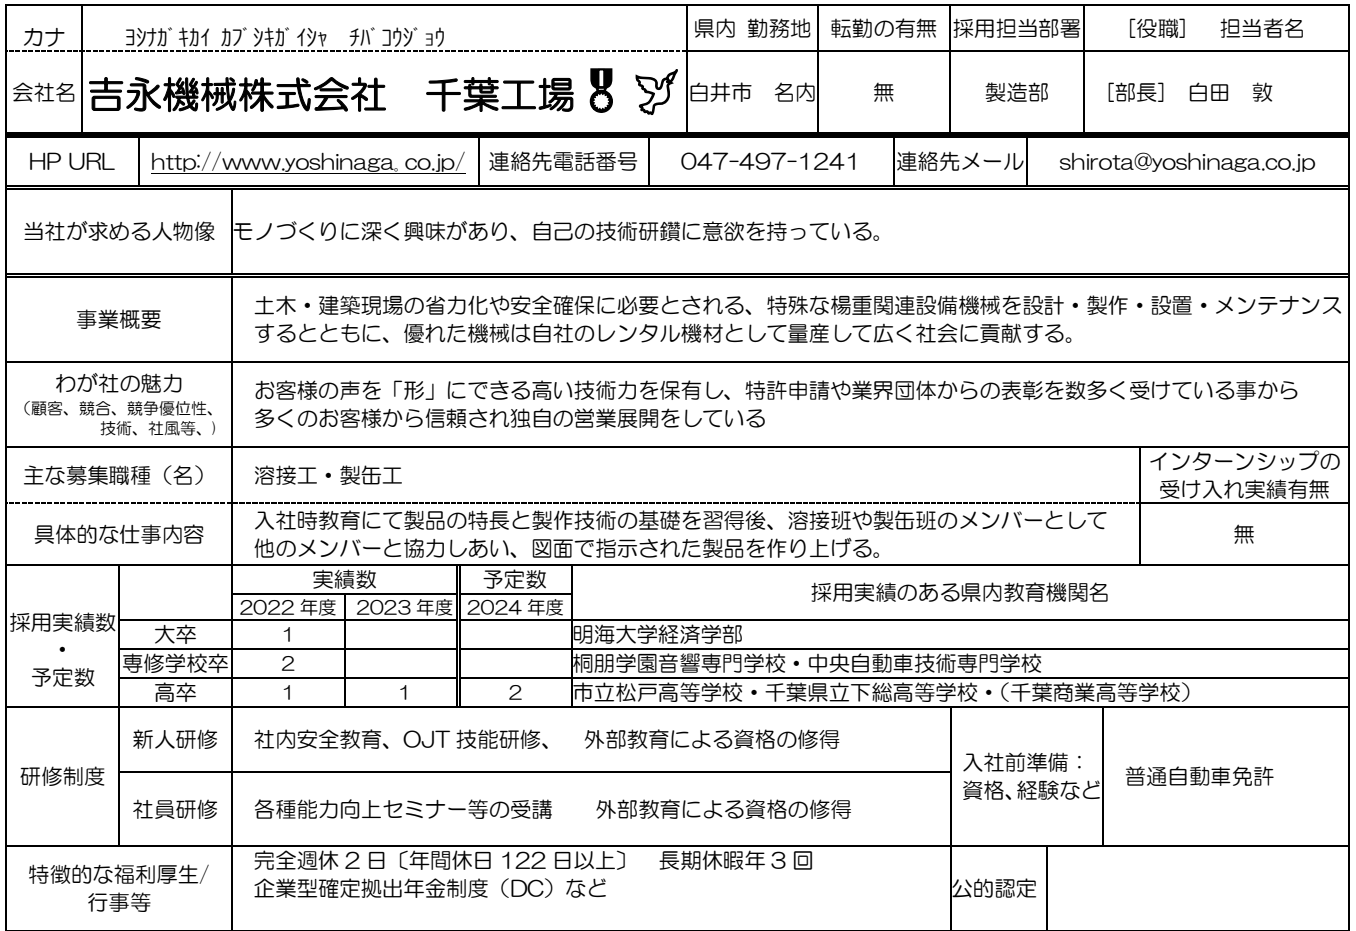 カナ ﾖｼﾅｶﾞｷｶｲ ｶﾌﾞｼｷｶﾞｲｼｬ ﾁﾊﾞｺｳｼﾞｮｳ 県内 勤務地 転勤の有無 採用担当部署 ［役職］ 担当者名
会社名 吉永機械株式会社 千葉工場 白井市 名内 無 製造部 ［部長］ 白田 敦
HP URL http://www.yoshinaga.co.jp/ 連絡先電話番号 047-497-1241 連絡先メール shirota@yoshinaga.co.jp
当社が求める人物像 モノづくりに深く興味があり、自己の技術研鑽に意欲を持っている。
事業概要
土木・建築現場の省力化や安全確保に必要とされる、特殊な楊重関連設備機械を設計・製作・設置・メンテナンス
するとともに、優れた機械は自社のレンタル機材として量産して広く社会に貢献する。
わが社の魅力
（顧客、競合、競争優位性、
技術、社風等、）
お客様の声を「形」にできる高い技術力を保有し、特許申請や業界団体からの表彰を数多く受けている事から
多くのお客様から信頼され独自の営業展開をしている
主な募集職種（名） 溶接工・製缶工
インターンシップの
受け入れ実績有無
具体的な仕事内容
入社時教育にて製品の特長と製作技術の基礎を習得後、溶接班や製缶班のメンバーとして
他のメンバーと協力しあい、図面で指示された製品を作り上げる。
無
採用実績数
・
予定数
実績数 予定数 採用実績のある県内教育機関名
2022 年度 2023 年度 2024 年度
大卒 1 明海大学経済学部
専修学校卒 2 桐朋学園音響専門学校・中央自動車技術専門学校
高卒 1 1 2 市立松戸高等学校・千葉県立下総高等学校・（千葉商業高等学校）
研修制度
新人研修 社内安全教育、OJT 技能研修、 外部教育による資格の修得
社員研修 各種能力向上セミナー等の受講 外部教育による資格の修得
入社前準備：
資格、経験など
普通自動車免許
特徴的な福利厚生/
行事等
完全週休 2 日〔年間休日 122 日以上〕 長期休暇年 3 回
企業型確定拠出年金制度（DC）など
公的認定